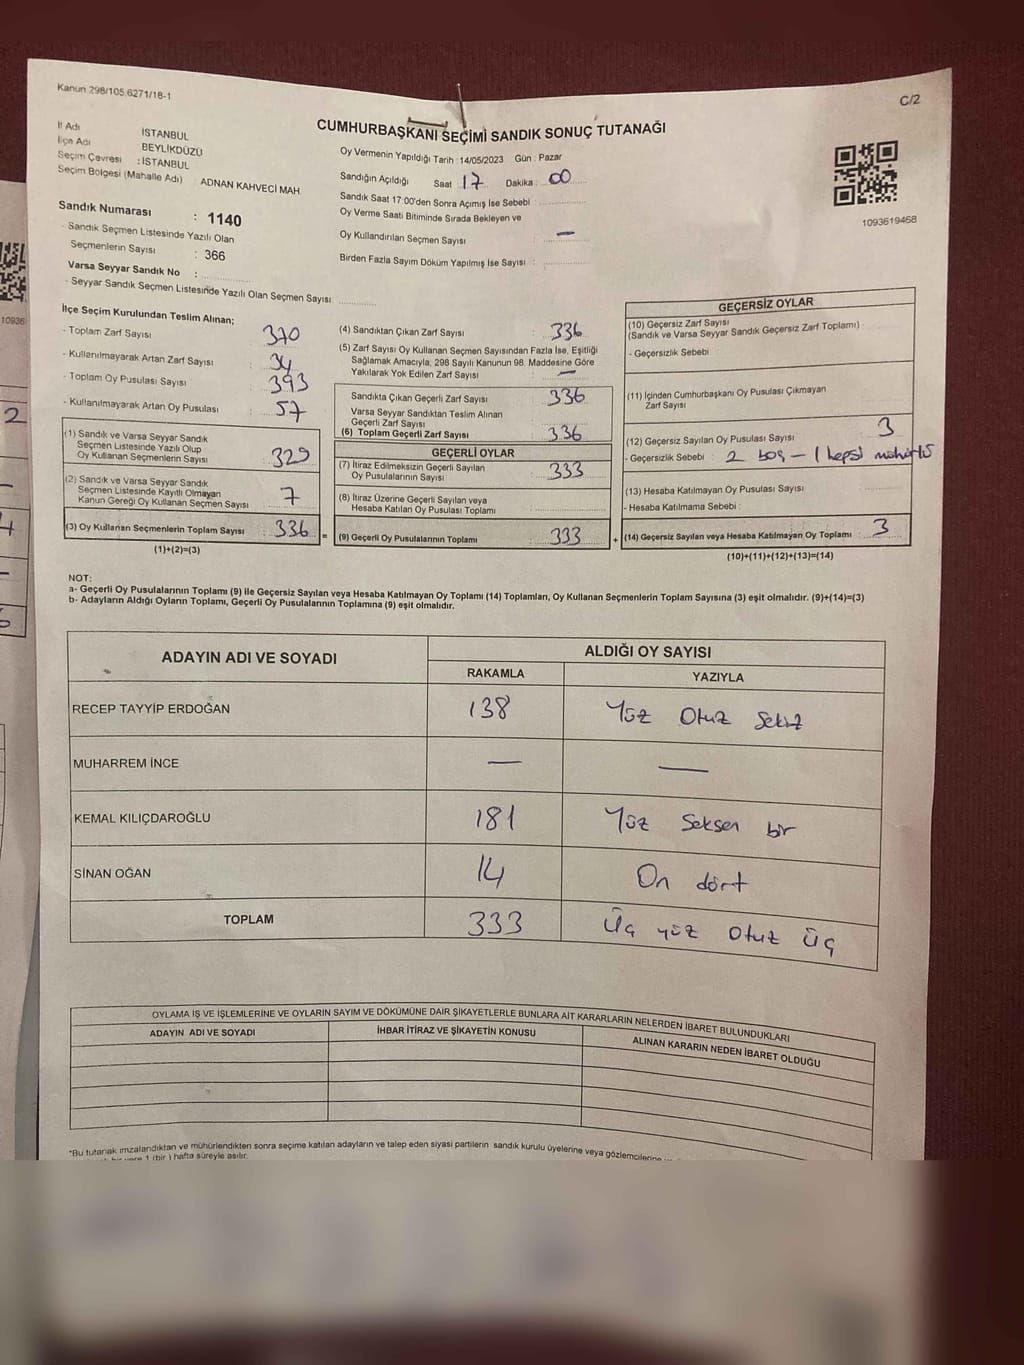 Kanun 298/105.6271/18-1
C/2
CUMHURBAŞKANI SEÇİMİ SANDIK SONUÇ TUTANAĞI
İl Adı İSTANBUL
İlçe Adı BEYLİKDÜZÜ
Seçim Çevresi : İSTANBUL
Seçim Bölgesi (Mahalle Adı) ADNAN KAHVECİ MAH.
Sandık Numarası : 1140
- Sandık Seçmen Listesinde Yazılı Olan
Seçmenlerin Sayısı : 366
Varsa Seyyar Sandık No :
- Seyyar Sandık Seçmen Listesinde Yazılı Olan Seçmen Sayısı
Oy Vermenin Yapıldığı Tarih : 14/05/2023 Gün : Pazar
Sandığın Açıldığı Saat 17 Dakika : 00
Sandık Saat 17:00'den Sonra Açımış İse Sebebi :
Oy Verme Saati Bitiminde Sırada Bekleyen ve
Oy Kullandırılan Seçmen Sayısı : —
Birden Fazla Sayım Döküm Yapılmış İse Sayısı :
1093619468
İlçe Seçim Kurulundan Teslim Alınan;
- Toplam Zarf Sayısı : 370
- Kullanılmayarak Artan Zarf Sayısı : 34
- Toplam Oy Pusulası Sayısı : 393
- Kullanılmayarak Artan Oy Pusulası : 57
(1) Sandık ve Varsa Seyyar Sandık
Seçmen Listesinde Yazılı Olup
Oy Kullanan Seçmenlerin Sayısı : 329
(2) Sandık ve Varsa Seyyar Sandık
Seçmen Listesinde Kayıtlı Olmayan
Kanun Gereği Oy Kullanan Seçmen Sayısı : 7
(3) Oy Kullanan Seçmenlerin Toplam Sayısı : 336
(1)+(2)=(3)
(4) Sandıktan Çıkan Zarf Sayısı : 336
(5) Zarf Sayısı Oy Kullanan Seçmen Sayısından Fazla İse, Eşitliği
Sağlamak Amacıyla; 298 Sayılı Kanunun 98. Maddesine Göre
Yakılarak Yok Edilen Zarf Sayısı : —
Sandıkta Çıkan Geçerli Zarf Sayısı : 336
Varsa Seyyar Sandıktan Teslim Alınan
Geçerli Zarf Sayısı :
(6) Toplam Geçerli Zarf Sayısı : 336
GEÇERLİ OYLAR
(7) İtiraz Edilmeksizin Geçerli Sayılan
Oy Pusulalarının Sayısı : 333
(8) İtiraz Üzerine Geçerli Sayılan veya
Hesaba Katılan Oy Pusulası Toplamı :
= (9) Geçerli Oy Pusulalarının Toplamı : 333
GEÇERSİZ OYLAR
(10) Geçersiz Zarf Sayısı
(Sandık ve Varsa Seyyar Sandık Geçersiz Zarf Toplamı) :
- Geçersizlik Sebebi
(11) İçinden Cumhurbaşkanı Oy Pusulası Çıkmayan
Zarf Sayısı :
(12) Geçersiz Sayılan Oy Pusulası Sayısı : 3
- Geçersizlik Sebebi : 2 boş – 1 hepsi mühürlü
(13) Hesaba Katılmayan Oy Pusulası Sayısı :
- Hesaba Katılmama Sebebi :
+ (14) Geçersiz Sayılan veya Hesaba Katılmayan Oy Toplamı : 3
(10)+(11)+(12)+(13)=(14)
NOT:
a- Geçerli Oy Pusulalarının Toplamı (9) ile Geçersiz Sayılan veya Hesaba Katılmayan Oy Toplamı (14) Toplamları, Oy Kullanan Seçmenlerin Toplam Sayısına (3) eşit olmalıdır. (9)+(14)=(3)
b- Adayların Aldığı Oyların Toplamı, Geçerli Oy Pusulalarının Toplamına (9) eşit olmalıdır.
ADAYIN ADI VE SOYADI
ALDIĞI OY SAYISI
RAKAMLA YAZIYLA
RECEP TAYYİP ERDOĞAN 138 Yüz Otuz Sekiz
MUHARREM İNCE — —
KEMAL KILIÇDAROĞLU 181 Yüz Seksen bir
SİNAN OĞAN 14 On dört
TOPLAM 333 Üç yüz Otuz Üç
OYLAMA İŞ VE İŞLEMLERİNE VE OYLARIN SAYIM VE DÖKÜMÜNE DAİR ŞİKAYETLERLE BUNLARA AİT KARARLARIN NELERDEN İBARET BULUNDUKLARI
ADAYIN ADI VE SOYADI İHBAR İTİRAZ VE ŞİKAYETİN KONUSU ALINAN KARARIN NEDEN İBARET OLDUĞU
*Bu tutanak imzalandıktan ve mühürlendikten sonra seçime katılan adayların ve talep eden siyasi partilerin sandık kurulu üyelerine veya gözlemcilerine
1 (bir ) hafta süreyle asılır.
10936
2
4